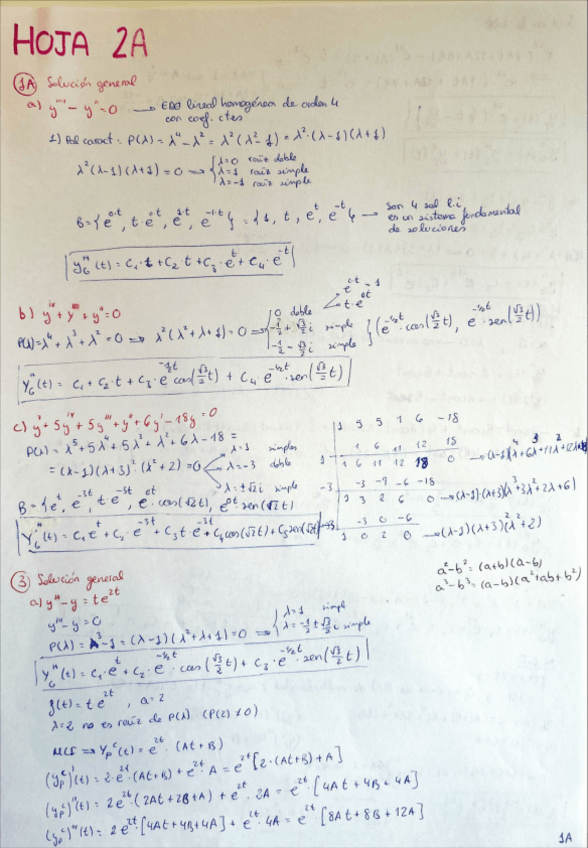 HOJA 2A
1A Solución general
a) y'''' - y'' = 0 → EDO lineal homogénea de orden 4
con coef. ctes
1) Pol caract: P(λ) = λ⁴ - λ² = λ²(λ² - 1) = λ²·(λ-1)(λ+1)
λ²(λ-1)(λ+1) = 0 ⇒ { λ=0 raíz doble
λ=1 raíz simple
λ=-1 raíz simple
B = {e^{0·t}, t·e^{0t}, e^{1·t}, e^{-1·t}} = {1, t, e^t, e^{-t}} → son 4 sol l.i.
es un sistema fundamental
de soluciones
y_G^H(t) = C₁·1 + C₂·t + C₃·e^t + C₄·e^{-t}
b) y^{IV} + y''' + y'' = 0
e^{0·t} = 1
t·e^{0t}
P(λ) = λ⁴ + λ³ + λ² = 0 ⇒ λ²(λ² + λ + 1) = 0 ⇒ { 0 doble
-1/2 + √3/2 i simple
-1/2 - √3/2 i simple } (e^{-1/2t}·cos(√3/2 t), e^{-1/2t}·sen(√3/2 t))
Y_G^H(t) = C₁ + C₂·t + C₃·e^{-1/2t} cos(√3/2 t) + C₄·e^{-1/2t}·sen(√3/2 t)
c) y^V + 5y^{IV} + 5y''' + y'' + 6y' - 18y = 0
P(λ) = λ⁵ + 5λ⁴ + 5λ³ + λ² + 6λ - 18 =
= (λ-1)(λ+3)²(λ²+2) = 0
λ=1 simples
λ=-3 doble
λ=±√2 i simple
B = {e^t, e^{-3t}, t·e^{-3t}, e^{0t}·cos(√2t), e^{0t}·sen(√2t)
Y_G^H(t) = C₁e^t + C₂·e^{-3t} + C₃t·e^{-3t} + C₄cos(√2t) + C₅sen(√2t)
1 5 5 1 6 -18
1 1 6 11 12 18
1 6 11 12 18 0
-3 -3 -9 -6 -18
1 3 2 6 0 → (λ-1)(λ+3)(λ³+3λ²+2λ+6)
-3 -3 0 -6
1 0 2 0 → (λ-1)(λ+3)²(λ²+2)
a²-b² = (a+b)(a-b)
a³-b³ = (a-b)(a²+ab+b²)
3 Solución general
a) y''' - y = te^{2t}
y''' - y = 0
P(λ) = λ³ - 1 = (λ-1)(λ²+λ+1) = 0 ⇒ { λ=1 simpl
λ = -1/2 ± √3/2 i simple
Y_G^H(t) = C₁·e^t + C₂·e^{-1/2t}·cos(√3/2 t) + C₃·e^{-1/2t}·sen(√3/2 t)
f(t) = t·e^{2t}, a=2
λ=2 no es raíz de P(λ) (P(2)≠0)
MCI ⇒ Y_P^C(t) = e^{2t}·(At+B)
(y_P^C)'(t) = 2·e^{2t}·(At+B) + e^{2t}·A = e^{2t}[2·(At+B)+A]
(y_P^C)''(t) = 2e^{2t}·(2At+2B+A) + e^{2t}·2A = e^{2t}·[4At+4B+4A]
(y_P^C)'''(t) = 2e^{2t}·[4At+4B+4A] + e^{2t}·4A = e^{2t}·[8At+8B+12A]
1A